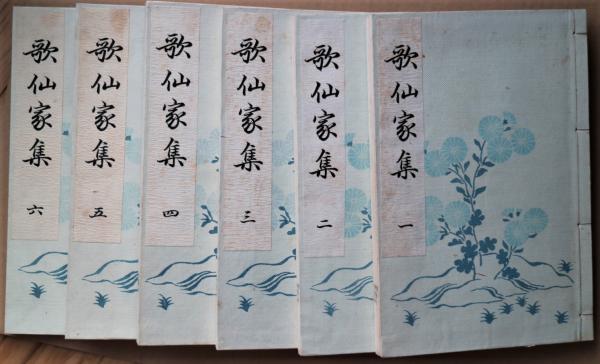 歌仙家集 一
歌仙家集 二
歌仙家集 三
歌仙家集 四
歌仙家集 五
歌仙家集 六